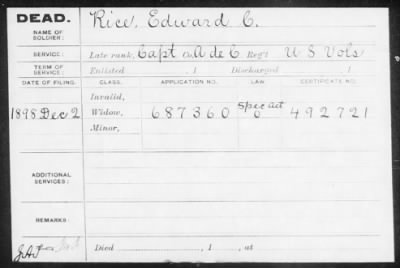 DEAD.
Rice, Edward C.
NAME OF SOLDIER:
SERVICE: Late rank, Capt & A de C Reg't U S Vols
TERM OF SERVICE: Enlisted , 1 Discharged , 1
DATE OF FILING. CLASS. APPLICATION NO. LAW. CERTIFICATE NO.
Invalid,
spec act
1898 Dec 2 Widow, 687360 6 492721
Minor,
ADDITIONAL SERVICES:
REMARKS:
Died , 1 , at